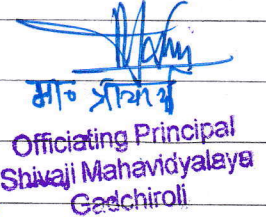 मा० प्राचार्य
Officiating Principal
Shivaji Mahavidyalaya
Gadchiroli